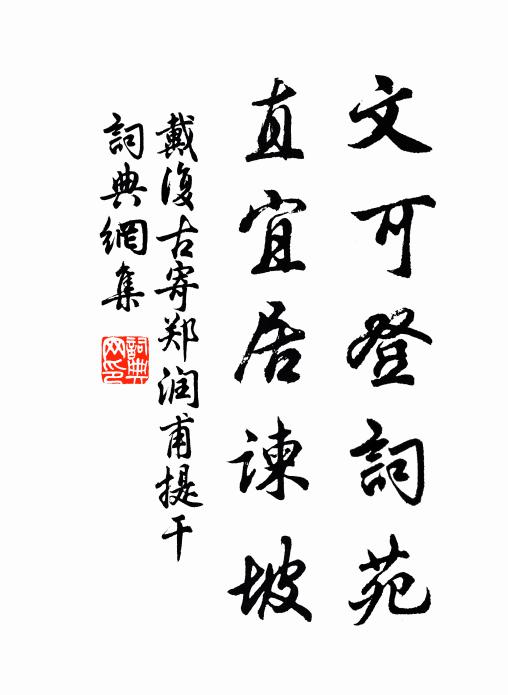 文可登詞苑
直宜居諫坡
戴復古寄郑润甫提干
詞典網集
詞典網印